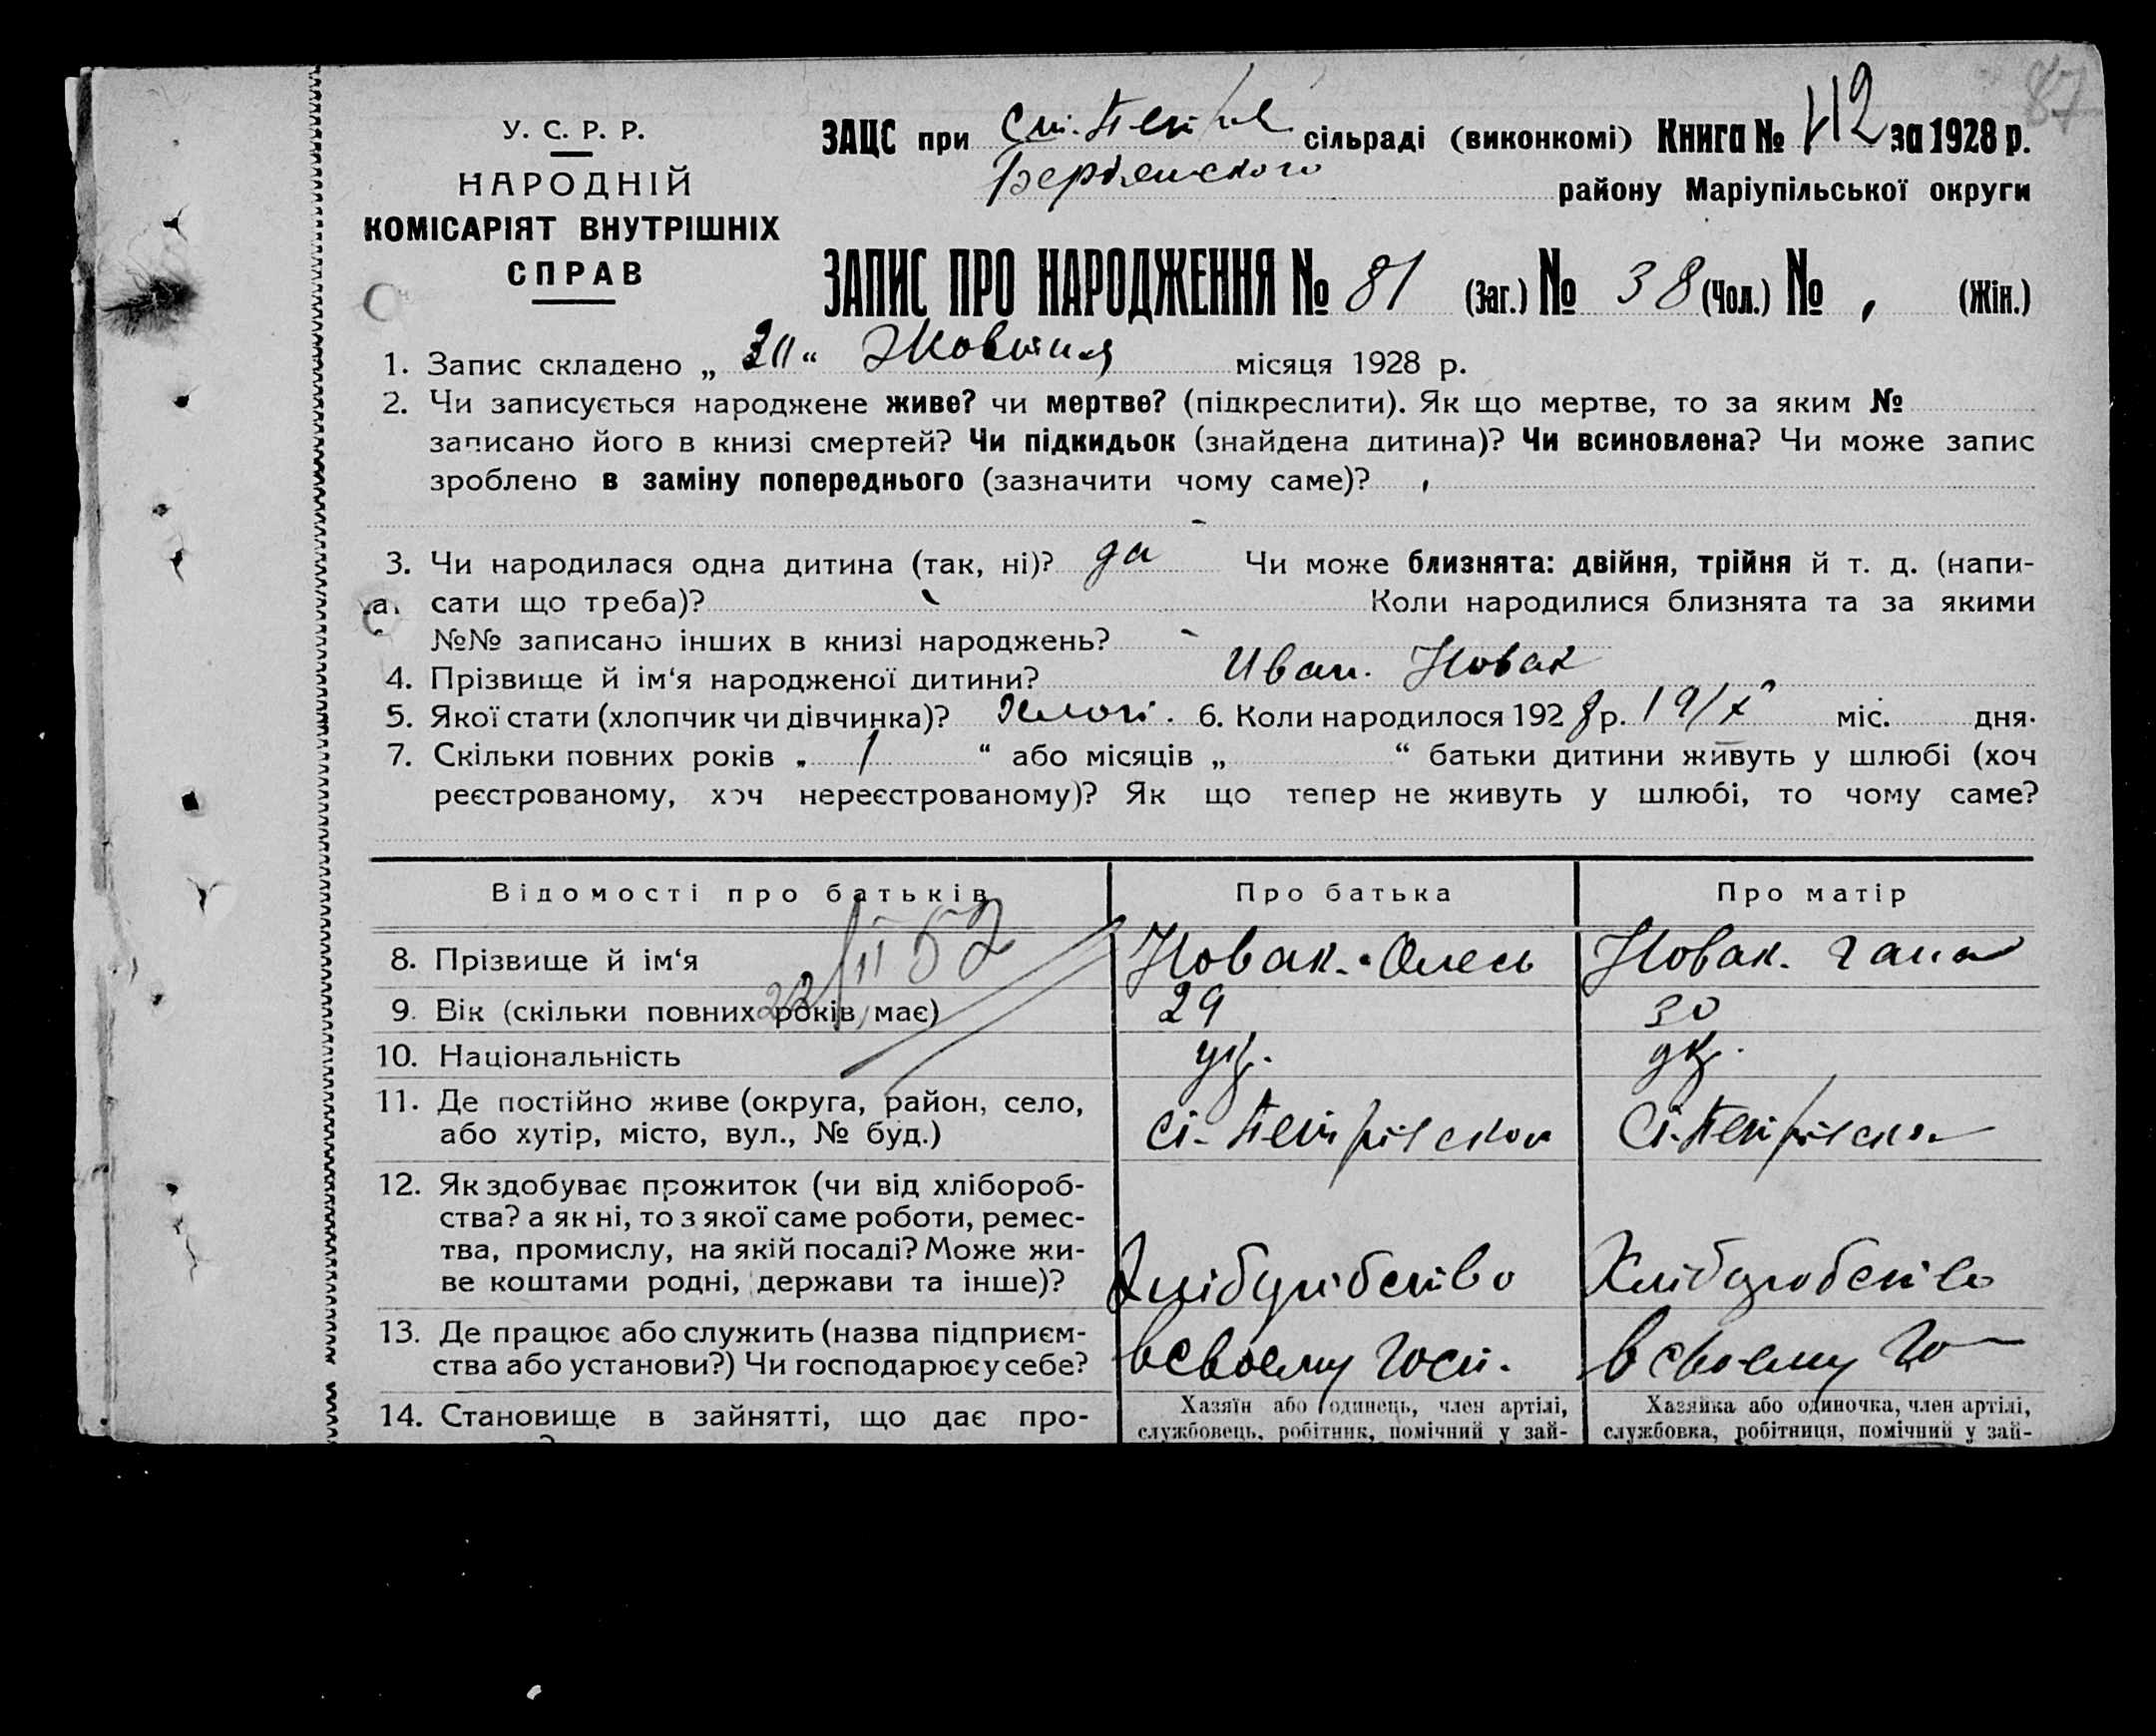 87
У. С. Р. Р.
НАРОДНІЙ
КОМІСАРІЯТ ВНУТРІШНІХ
СПРАВ
ЗАЦС при сільраді (виконкомі) Книга № 112 за 1928 р.
Бердянского району Маріупільської округи
ЗАПИС ПРО НАРОДЖЕННЯ № 81 (Заг.) № 38 (Чол.) № (Жін.)
1. Запис складено „ “ Жовтня місяця 1928 р.
2. Чи записується народжене живе? чи мертве? (підкреслити). Як що мертве, то за яким №
записано його в книзі смертей? Чи підкидьок (знайдена дитина)? Чи всиновлена? Чи може запис
зроблено в заміну попереднього (зазначити чому саме)?
3. Чи народилася одна дитина (так, ні)? да Чи може близнята: двійня, трійня й т. д. (напи-
сати що треба)? Коли народилися близнята та за якими
№№ записано інших в книзі народжень?
4. Прізвище й ім‘я народженої дитини? Иван. Новак
5. Якої стати (хлопчик чи дівчинка)? 6. Коли народилося 1928 р. 19/X міс. дня.
7. Скільки повних років „ 1 “ або місяців „ “ батьки дитини живуть у шлюбі (хоч
реєстрованому, хоч нереєстрованому)? Як що тепер не живуть у шлюбі, то чому саме?
Відомості про батьків Про батька Про матір
22/II 52
8. Прізвище й ім‘я Новак. Олесь Новак. Гана
9. Вік (скільки повних років має) 29 30
10. Національність укр. укр.
11. Де постійно живе (округа, район, село,
або хутір, місто, вул., № буд.)
12. Як здобуває прожиток (чи від хлібороб-
ства? а як ні, то з якої саме роботи, ремес-
тва, промислу, на якій посаді? Може жи-
ве коштами родні, держави та інше)? Хліборобство Хліборобство
13. Де працює або служить (назва підприєм-
ства або установи?) Чи господарює у себе? в своему госп. в своему го
14. Становище в зайнятті, що дає про- Хазяїн або одинець, член артілі, Хазяйка або одиночка, член артілі,
службовець, робітник, помічний у зай- службовка, робітниця, помічний у зай-